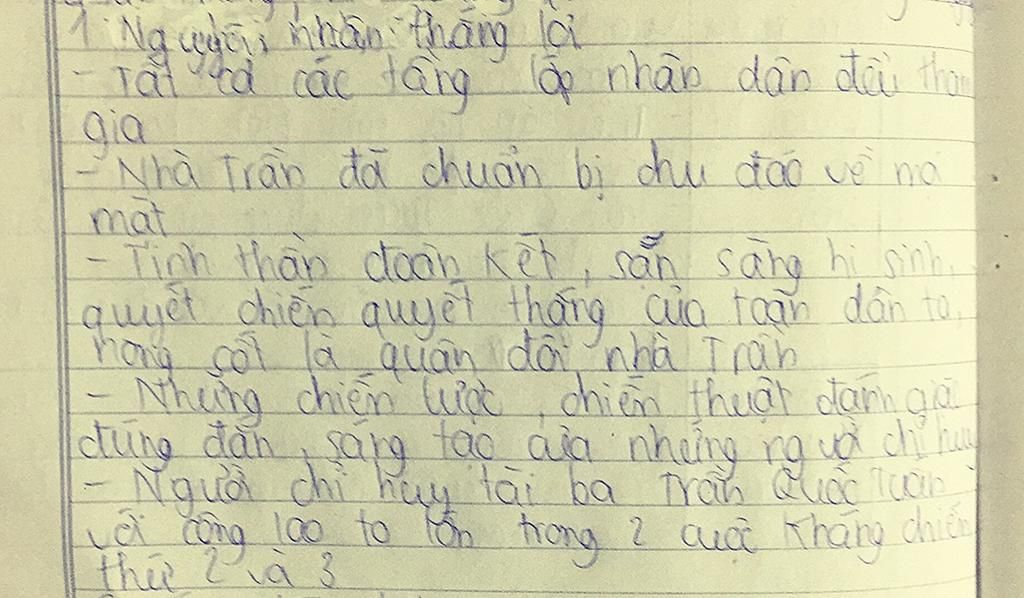 1. Nguyên nhân thắng lợi
- Tất cả các tầng lớp nhân dân đều tham
gia
- Nhà Trần đã chuẩn bị chu đáo về mọi
mặt
- Tinh thần đoàn kết, sẵn sàng hi sinh,
quyết chiến quyết thắng của toàn dân ta,
nòng cốt là quân đội nhà Trần
- Những chiến lược, chiến thuật đánh giặc
đúng đắn, sáng tạo của những người chỉ huy
- Người chỉ huy tài ba Trần Quốc Tuấn
với công lao to lớn trong 2 cuộc kháng chiến
thứ 2 và 3